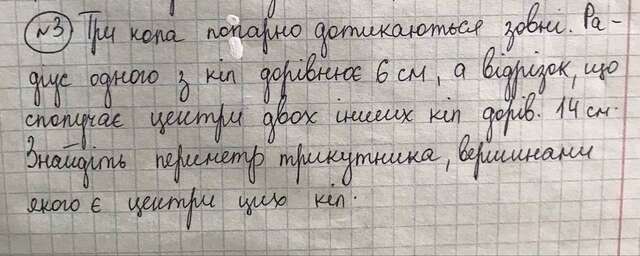 №3 Три кола попарно дотикаються зовні. Ра-
діус одного з кіл дорівнює 6 см, а відрізок, що
сполучає центри двох інших кіл дорів. 14 см.
Знайдіть периметр трикутника, вершинами
якого є центри цих кіл.